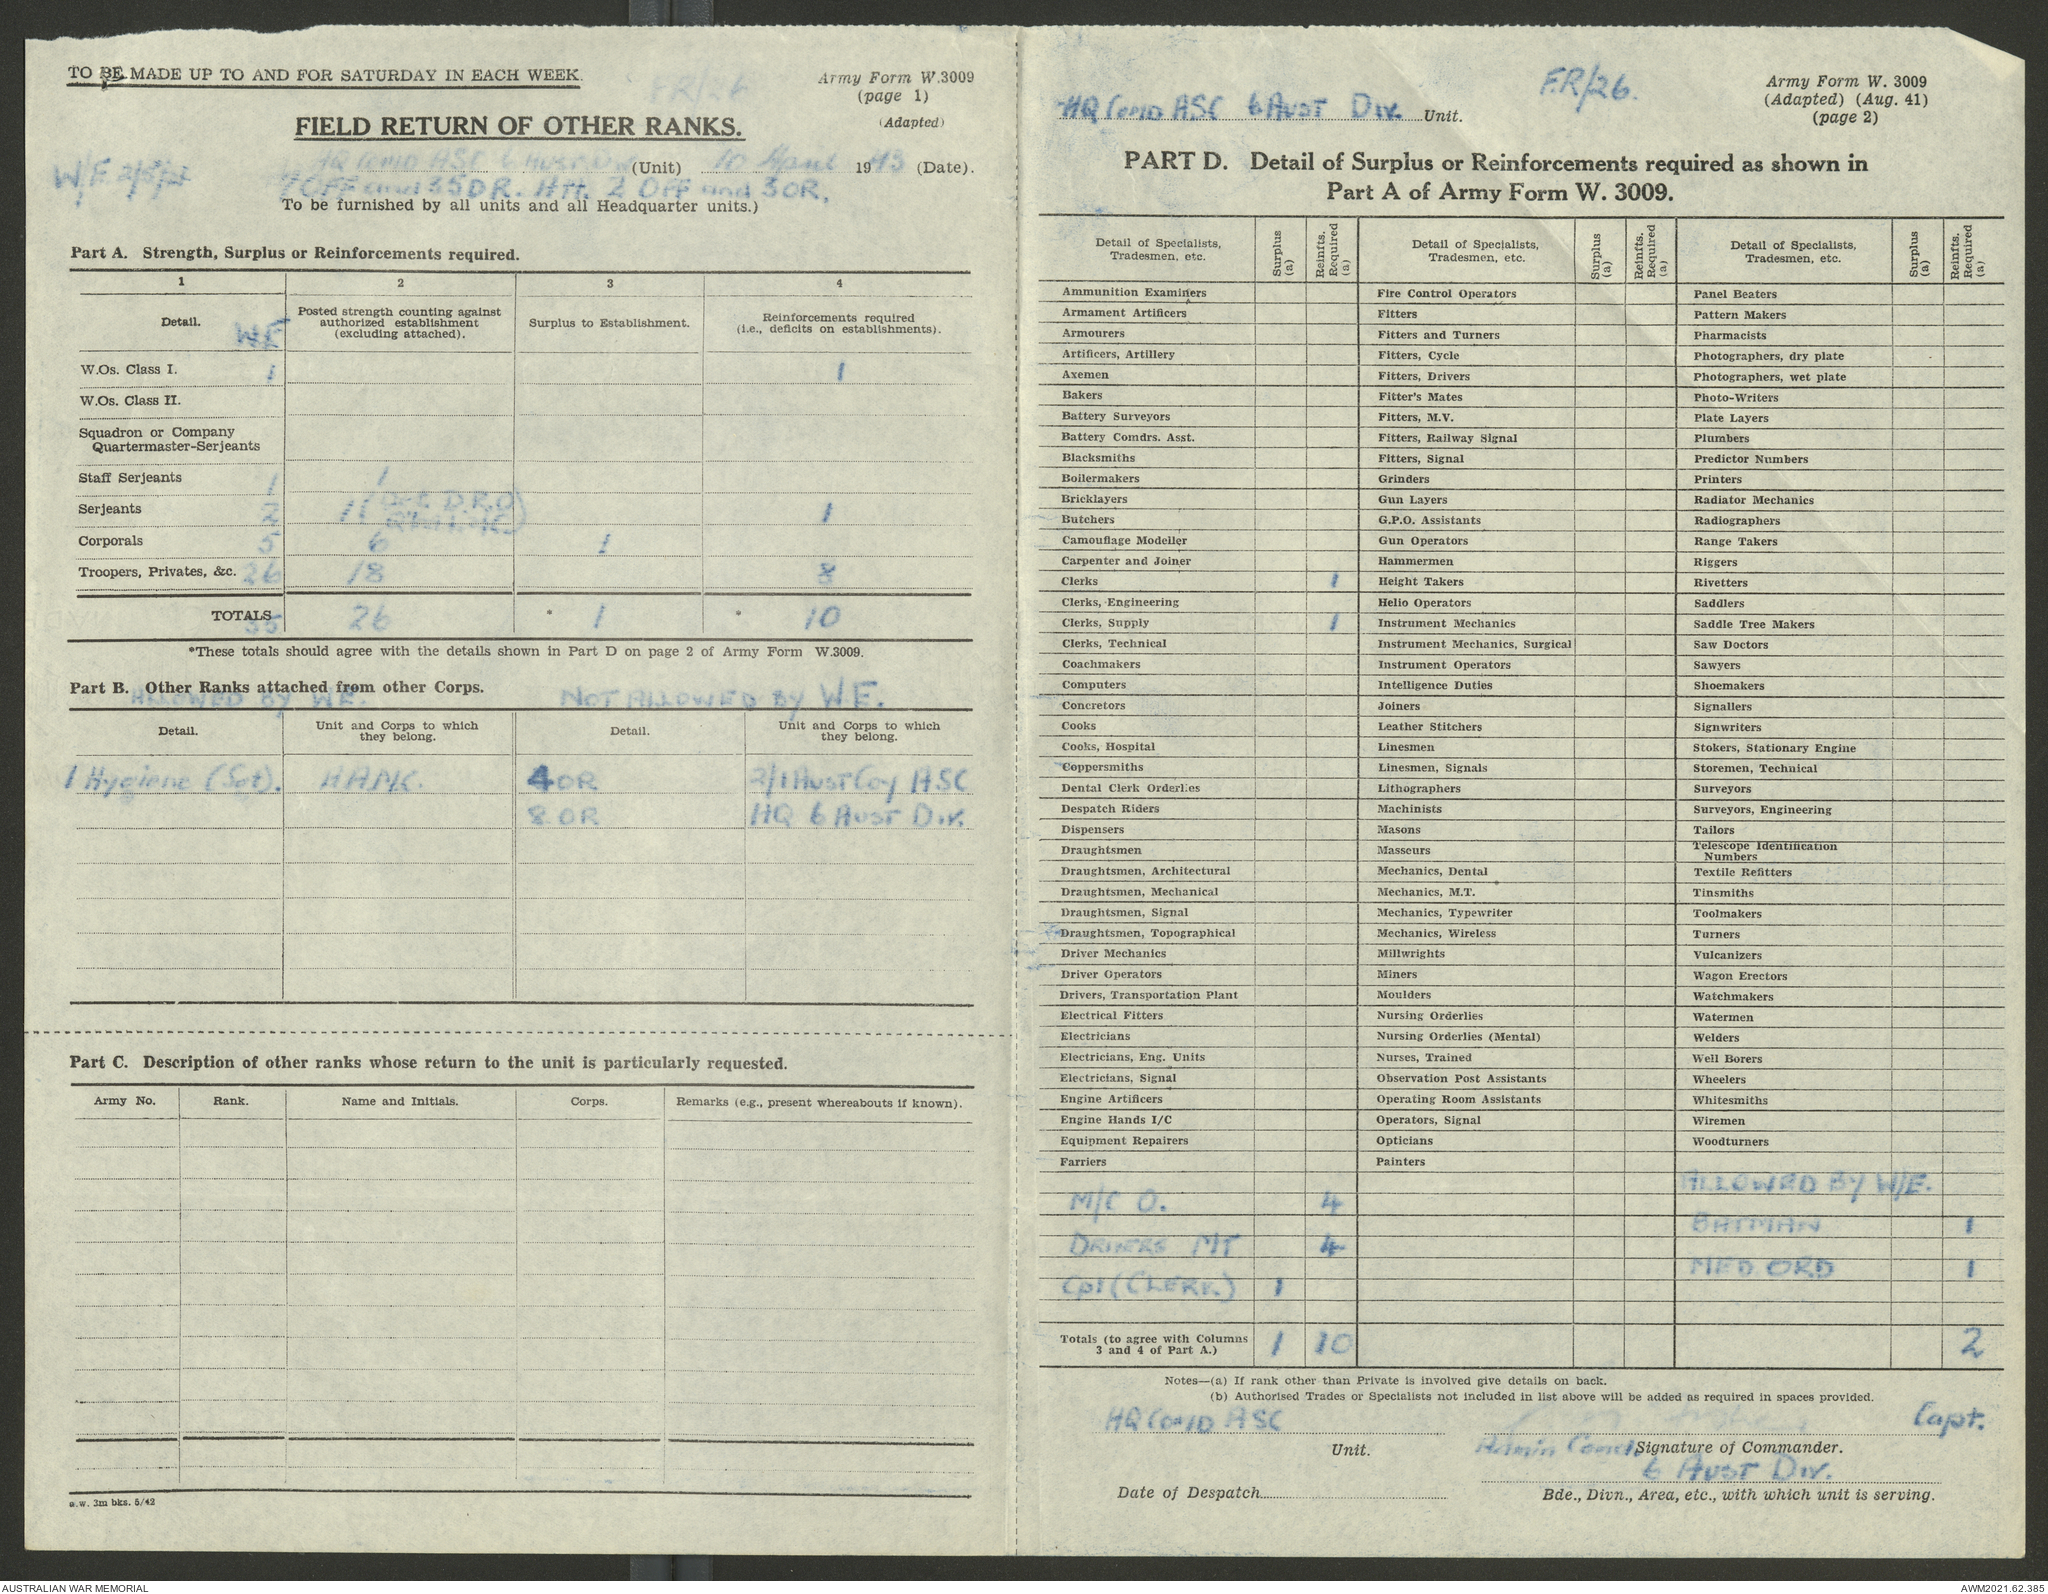 TO BE MADE UP TO AND FOR SATURDAY IN EACH WEEK.
FR/26
Army Form W.3009
(page 1)
(Adapted)
FIELD RETURN OF OTHER RANKS.
HQ Comd ASC 6 Aust Div (Unit) 10 April 1943 (Date).
W.E.
7 OFF and 35 OR. Att. 2 OFF and 3 OR.
To be furnished by all units and all Headquarter units.)
Part A. Strength, Surplus or Reinforcements required.
1 2 3 4
Detail. W.E Posted strength counting against authorized establishment (excluding attached). Surplus to Establishment. Reinforcements required (i.e., deficits on establishments).
W.Os. Class I. 1 1
W.Os. Class II.
Squadron or Company
Quartermaster-Serjeants
Staff Serjeants 1 1
Serjeants 2 1 1
Corporals 5 6 1
Troopers, Privates, &c. 26 18 8
TOTALS 35 26 * 1 * 10
*These totals should agree with the details shown in Part D on page 2 of Army Form W.3009.
Part B. Other Ranks attached from other Corps.
ALLOWED BY WE. NOT ALLOWED BY W.E.
Detail. Unit and Corps to which they belong. Detail. Unit and Corps to which they belong.
1 Hygiene (Sgt). AAMC. 4 OR 2/1 Aust Coy ASC
8 OR HQ 6 Aust Div.
Part C. Description of other ranks whose return to the unit is particularly requested.
Army No. Rank. Name and Initials. Corps. Remarks (e.g., present whereabouts if known).
e.w. 3m bks. 5/42
HQ Comd ASC 6 Aust Div. Unit.
F.R/26.
Army Form W. 3009
(Adapted) (Aug. 41)
(page 2)
PART D. Detail of Surplus or Reinforcements required as shown in
Part A of Army Form W. 3009.
Detail of Specialists, Tradesmen, etc. Surplus (a) Reinfts. Required (a) Detail of Specialists, Tradesmen, etc. Surplus (a) Reinfts. Required (a) Detail of Specialists, Tradesmen, etc. Surplus (a) Reinfts. Required (a)
Ammunition Examiners Fire Control Operators Panel Beaters
Armament Artificers Fitters Pattern Makers
Armourers Fitters and Turners Pharmacists
Artificers, Artillery Fitters, Cycle Photographers, dry plate
Axemen Fitters, Drivers Photographers, wet plate
Bakers Fitter's Mates Photo-Writers
Battery Surveyors Fitters, M.V. Plate Layers
Battery Comdrs. Asst. Fitters, Railway Signal Plumbers
Blacksmiths Fitters, Signal Predictor Numbers
Boilermakers Grinders Printers
Bricklayers Gun Layers Radiator Mechanics
Butchers G.P.O. Assistants Radiographers
Camouflage Modeller Gun Operators Range Takers
Carpenter and Joiner Hammermen Riggers
Clerks 1 Height Takers Rivetters
Clerks, Engineering Helio Operators Saddlers
Clerks, Supply 1 Instrument Mechanics Saddle Tree Makers
Clerks, Technical Instrument Mechanics, Surgical Saw Doctors
Coachmakers Instrument Operators Sawyers
Computers Intelligence Duties Shoemakers
Concretors Joiners Signallers
Cooks Leather Stitchers Signwriters
Cooks, Hospital Linesmen Stokers, Stationary Engine
Coppersmiths Linesmen, Signals Storemen, Technical
Dental Clerk Orderlies Lithographers Surveyors
Despatch Riders Machinists Surveyors, Engineering
Dispensers Masons Tailors
Draughtsmen Masseurs Telescope Identification Numbers
Draughtsmen, Architectural Mechanics, Dental Textile Refitters
Draughtsmen, Mechanical Mechanics, M.T. Tinsmiths
Draughtsmen, Signal Mechanics, Typewriter Toolmakers
Draughtsmen, Topographical Mechanics, Wireless Turners
Driver Mechanics Millwrights Vulcanizers
Driver Operators Miners Wagon Erectors
Drivers, Transportation Plant Moulders Watchmakers
Electrical Fitters Nursing Orderlies Watermen
Electricians Nursing Orderlies (Mental) Welders
Electricians, Eng. Units Nurses, Trained Well Borers
Electricians, Signal Observation Post Assistants Wheelers
Engine Artificers Operating Room Assistants Whitesmiths
Engine Hands I/C Operators, Signal Wiremen
Equipment Repairers Opticians Woodturners
Farriers Painters
ALLOWED BY W/E.
M/C O. 4
BATMAN 1
DRIVERS MT 4
MED ORD 1
Cpl (CLERK) 1
Totals (to agree with Columns 3 and 4 of Part A.) 1 10 2
Notes—(a) If rank other than Private is involved give details on back.
(b) Authorised Trades or Specialists not included in list above will be added as required in spaces provided.
HQ Comd ASC Capt.
Unit. Admin Comd Signature of Commander.
6 Aust Div.
Date of Despatch
Bde., Divn., Area, etc., with which unit is serving.
AUSTRALIAN WAR MEMORIAL
AWM2021.62.385